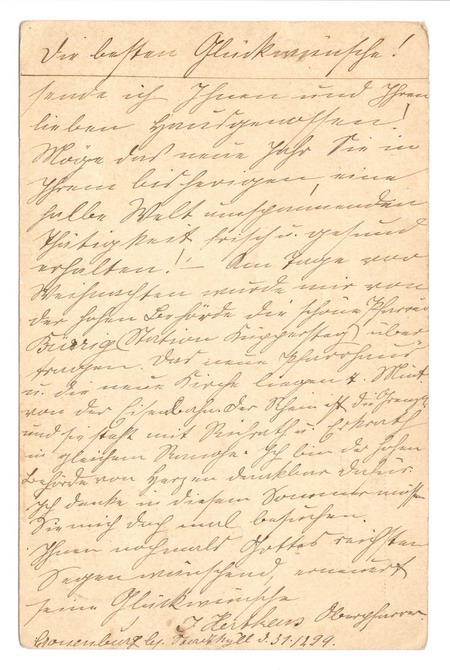 Die besten Glückwünsche!
sende ich Ihnen und Ihren
lieben Hausgenossen!
Möge das neue Jahr Sie in
Ihrem bisherigen, eine
halbe Welt umspannenden
Thätigkeit frisch u. gesund
erhalten! – Am Tage vor
Weihnachten wurde mir von
der hohen Behörde die schöne Pfarrei
Bürrig (Station Küppersteg) über
tragen. Das neue Pfarrhaus
u. die neue Kirche liegen 4. Minut
von der Eisenbahn. Der Rhein ist die Grenze
und sie steht mit Richrath u. Erkrath
in gleichem Range. Ich bin der hohen
Behörde von Herzen dankbar dafür.
Ich denke in diesem Sommer müssen
Sie mich doch mal besuchen.
Ihnen nochmals Gottes reichsten
Segen wünschend, erneuert
seine Glückwünsche
J Herkens Oberpfarrer
Cronenburg bei Stadtkyll d. 31.12.99.